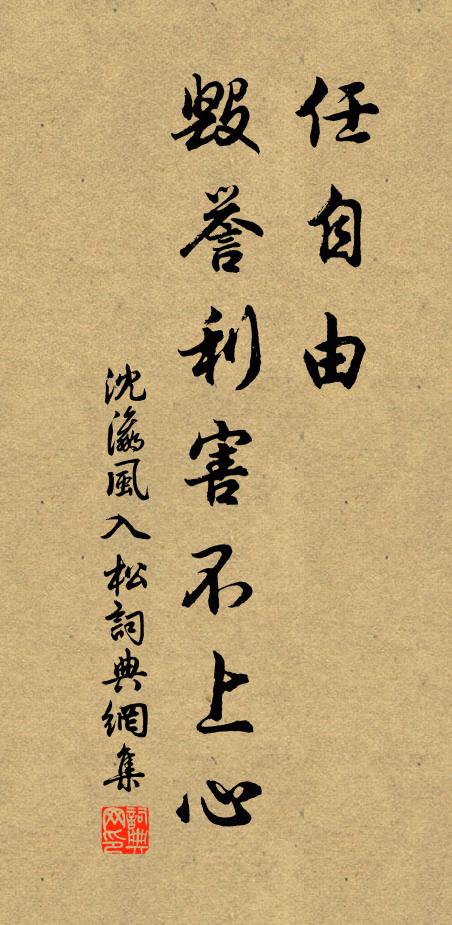 任自由
毁誉利害不上心
沈瀛風入松詞典網集
詞典网印